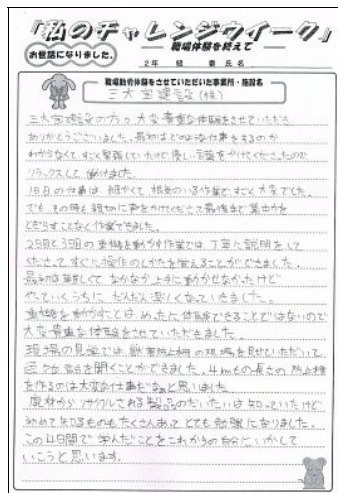 「私のチャレンジウイーク」
職場体験を終えて
お世話になりました。
2年 組 番 氏名
職場勤労体験をさせていただいた事業所・施設名
三大宝建設(株)
三大宝建設の方々、大変貴重な体験をさせていただき
ありがとうございました。最初はどのような仕事をするのか
わからなくて、すごく緊張していたけど優しい言葉をかけてくださったので
リラックスして働けました。
1日目の仕事は、細かくて、根気のいる作業で、すごく大変でした。
でも、その時も親切に声をかけてくださって最後まで集中力を
とぎらすことなく作業できました。
2日目と3日目の重機を動かす作業では、丁寧に説明をして
くださって、すぐに操作のしかたを覚えることができました。
最初は難しくて、なかなか上手に動かせなかったけど
やっていくうちに、だんだん楽しくなっていきました。
重機を動かすことは、めったに体験できることではないので
大変貴重な体験をさせていただきました。
現場の見学では、 防止柵の現場を見せていただいて、
色々な話を聞くことができました。4mもの長さの防止柵
を作るのは大変な仕事だなと思いました。
廃材からリサイクルされる製品のだいたいは知っていたけど
初めて知るものもたくさんあってとても勉強になりました。
この4日間で学んだことをこれからの自分にいかして
いこうと思います。